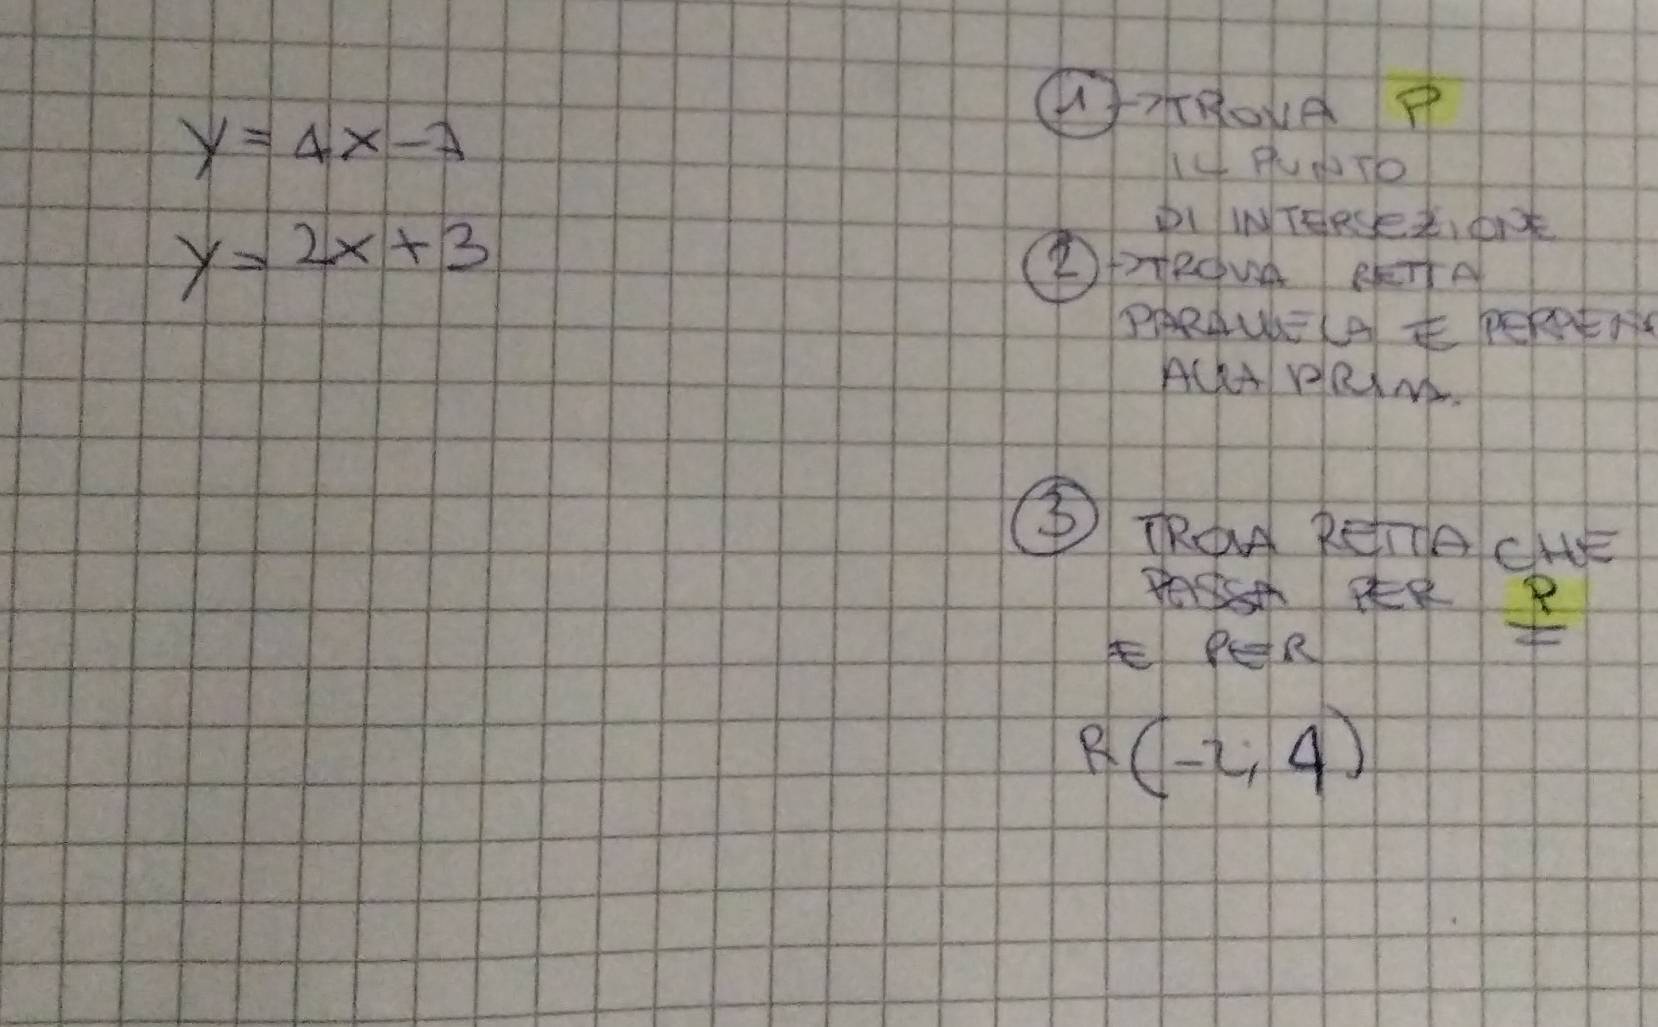 y = 4x - 7
y = 2x + 3
1 -> TROVA P
IL PUNTO
DI INTERSEZIONE
2 -> TROVA RETTA
PARALLELA E PERPEN
ALLA PRIMA.
3 TROVA RETTA CHE
PASSA PER P
E PER
R (-2; 4)